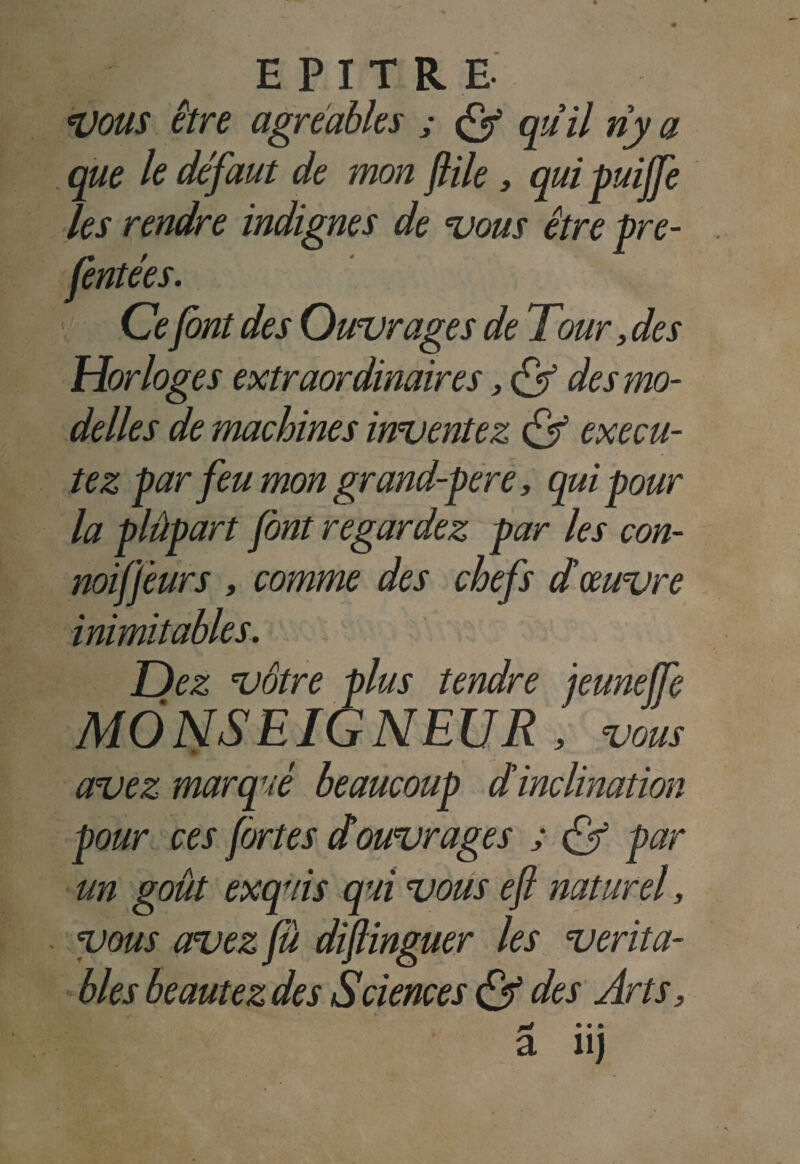 EPITRE.
vous être agréables ; & qu'il n'y a
que le défaut de mon ſtile , qui puiſſe
les rendre indignes de vous être pre-
ſentées.
Ce ſont des Ouvrages de Tour, des
Horloges extraordinaires , & des mo-
delles de machines inventez & execu-
tez par feu mon grand-pere, qui pour
la plûpart ſont regardez par les con-
noiſſeurs , comme des chefs d'œuvre
inimitables.
Dez vôtre plus tendre jeuneſſe
MONSEIGNEUR , vous
avez marqué beaucoup d'inclination
pour ces ſortes d'ouvrages ; & par
un goût exquis qui vous eſt naturel,
vous avez ſû diſtinguer les verita-
bles beautez des Sciences & des Arts,
ã iij